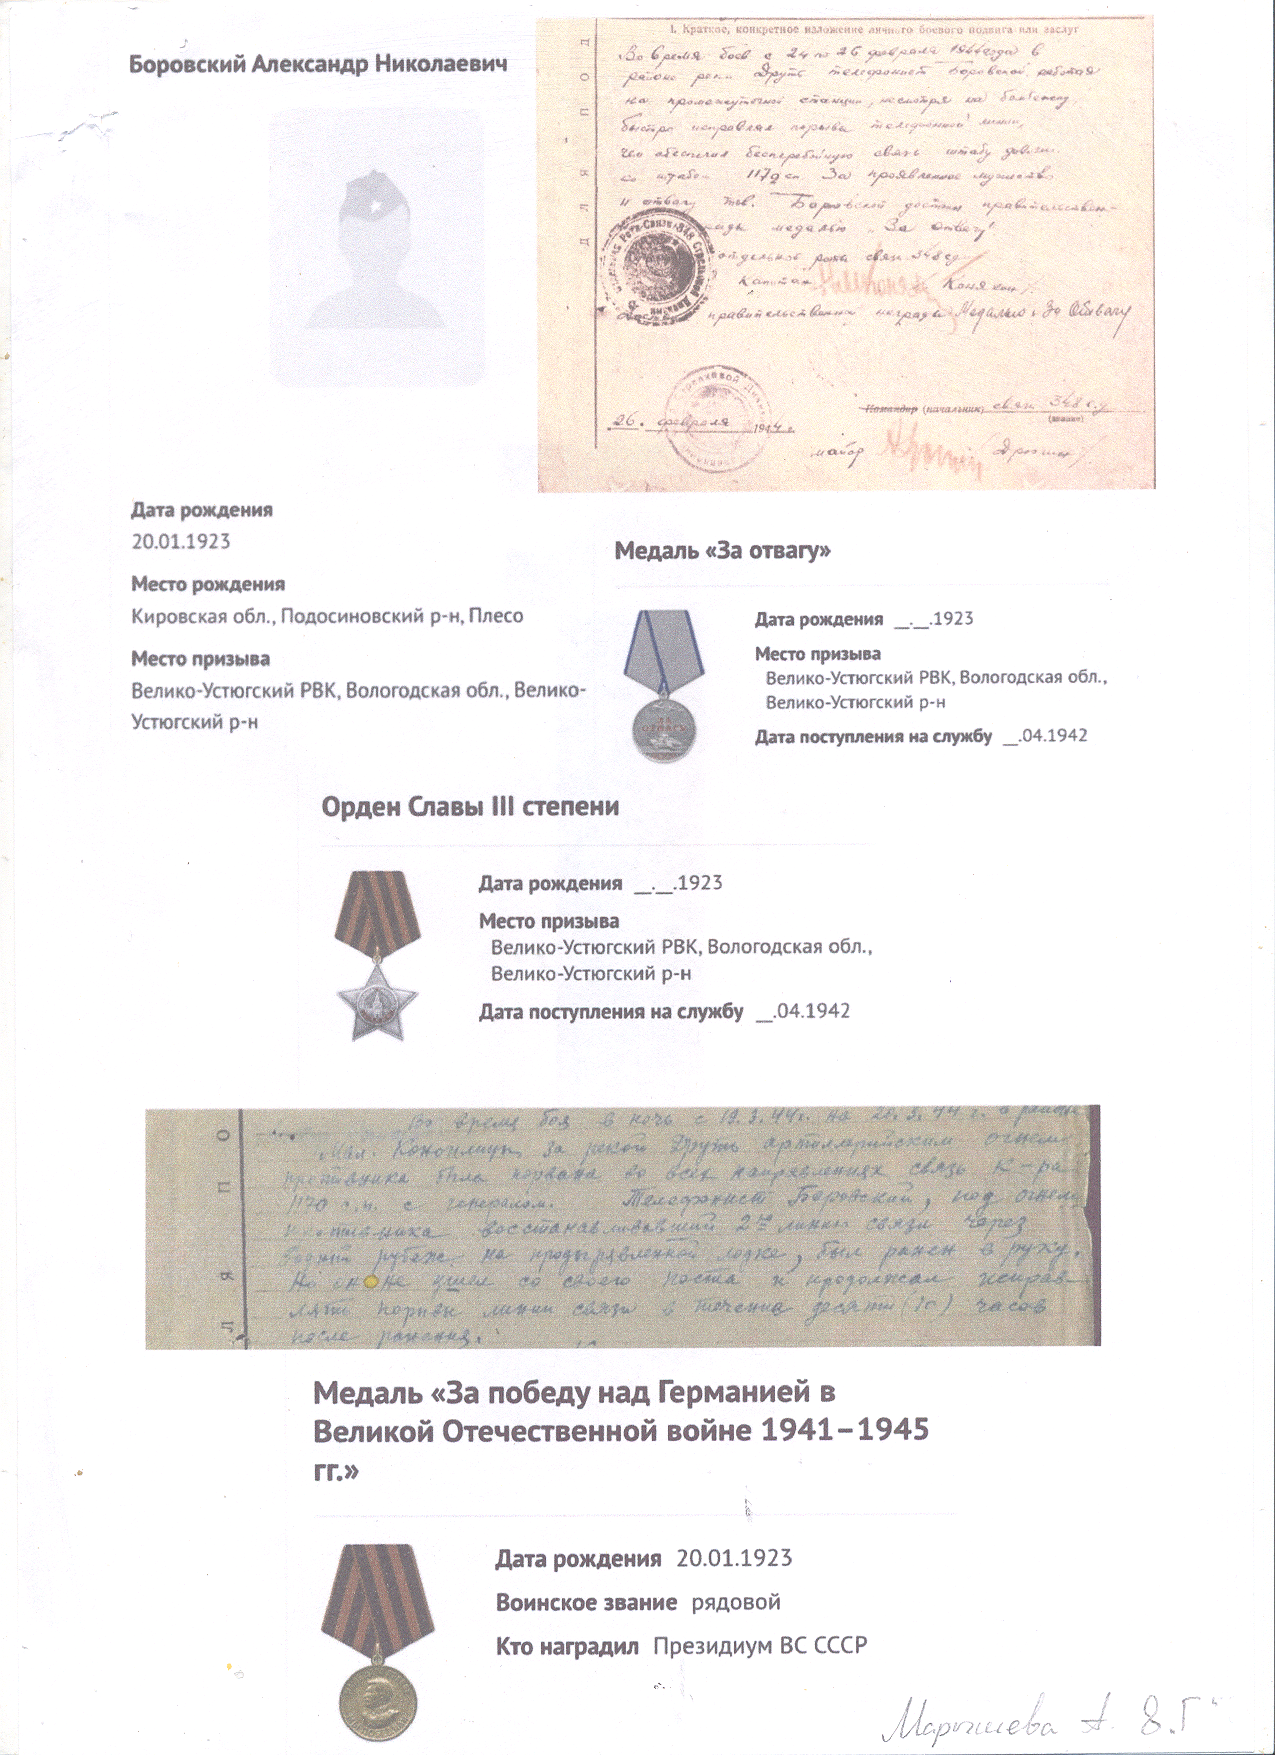 Боровский Александр Николаевич
I. Краткое, конкретное изложение личного боевого подвига или заслуг
Во время боев с 24 по 26 февраля 1944 года в
районе реки Друть телефонист Боровской, работая
на промежуточной станции, несмотря на бомбежку,
быстро исправлял порывы телефонной линии,
чем обеспечил бесперебойную связь штаба дивизии
со штабом 1172 сп. За проявленное мужество
и отвагу тов. Боровской достоин правительствен-
медалью „За отвагу"
отдельной роты связи 348 сд
Капитан Конякин
правительственной награды Медалью „За Отвагу
26. февраля 1944 г.
Командир (начальник) связи 348 с.д.
(звание)
майор
ДЛЯ ПОД
Дата рождения
20.01.1923
Место рождения
Кировская обл., Подосиновский р-н, Плесо
Место призыва
Велико-Устюгский РВК, Вологодская обл., Велико-
Устюгский р-н
Медаль «За отвагу»
Дата рождения __.__.1923
Место призыва
Велико-Устюгский РВК, Вологодская обл.,
Велико-Устюгский р-н
Дата поступления на службу __.04.1942
Орден Славы III степени
Дата рождения __.__.1923
Место призыва
Велико-Устюгский РВК, Вологодская обл.,
Велико-Устюгский р-н
Дата поступления на службу __.04.1942
Во время боя в ночь с 19.3.44г. на 20.3.44 г. в районе
Мал. Кононличи за рекой Друть артиллерийским огнем
противника была порвана во всех направлениях связь к-ра
1170 с.п. с генералом. Телефонист Боровский, под огнем
противника восстанавливавший 2 линии связи через
водный рубеж на продырявленной лодке, был ранен в руку.
Но он не ушел со своего поста и продолжал исправ-
лять порывы линии связи в течении десяти (10) часов
после ранения.
Л Я П О
Медаль «За победу над Германией в
Великой Отечественной войне 1941–1945
гг.»
Дата рождения 20.01.1923
Воинское звание рядовой
Кто наградил Президиум ВС СССР
А. 8.Г